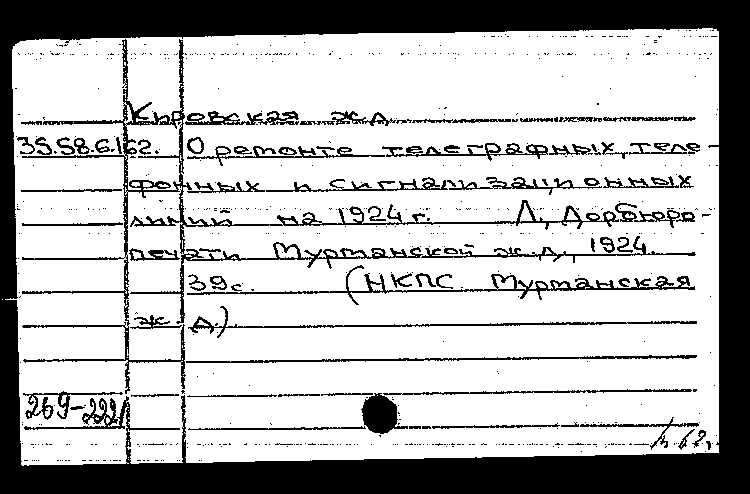 Кировская ж д
35.58.6.162. О ремонте телеграфных, теле-
фонных и сигнализационных
линий на 1924 г. Л., Дорбюро-
печати Мурманской ж.д., 1924.
39 с. (НКПС Мурманская
ж. д.)
269-2221
62,